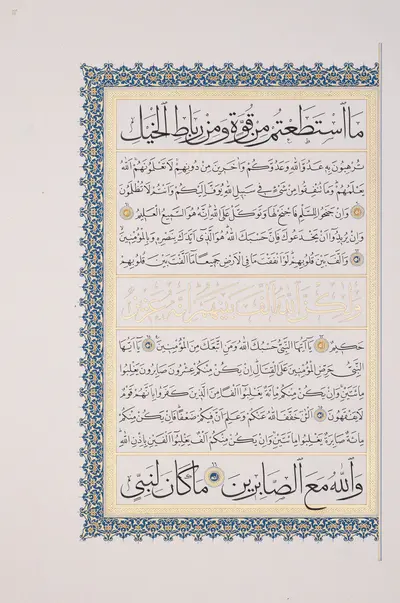 مَا ٱسْتَطَعْتُم مِّن قُوَّةٍ وَمِن رِّبَاطِ ٱلْخَيْلِ
تُرْهِبُونَ بِهِۦ عَدُوَّ ٱللَّهِ وَعَدُوَّكُمْ وَءَاخَرِينَ مِن دُونِهِمْ لَا تَعْلَمُونَهُمُ ٱللَّهُ
يَعْلَمُهُمْ وَمَا تُنفِقُوا۟ مِن شَىْءٍ فِى سَبِيلِ ٱللَّهِ يُوَفَّ إِلَيْكُمْ وَأَنتُمْ لَا تُظْلَمُونَ
وَإِن جَنَحُوا۟ لِلسَّلْمِ فَٱجْنَحْ لَهَا وَتَوَكَّلْ عَلَى ٱللَّهِ إِنَّهُۥ هُوَ ٱلسَّمِيعُ ٱلْعَلِيمُ
وَإِن يُرِيدُوٓا۟ أَن يَخْدَعُوكَ فَإِنَّ حَسْبَكَ ٱللَّهُ هُوَ ٱلَّذِىٓ أَيَّدَكَ بِنَصْرِهِۦ وَبِٱلْمُؤْمِنِينَ
وَأَلَّفَ بَيْنَ قُلُوبِهِمْ لَوْ أَنفَقْتَ مَا فِى ٱلْأَرْضِ جَمِيعًا مَّآ أَلَّفْتَ بَيْنَ قُلُوبِهِمْ
وَلَٰكِنَّ ٱللَّهَ أَلَّفَ بَيْنَهُمْ إِنَّهُۥ عَزِيزٌ
حَكِيمٌ يَٰٓأَيُّهَا ٱلنَّبِىُّ حَسْبُكَ ٱللَّهُ وَمَنِ ٱتَّبَعَكَ مِنَ ٱلْمُؤْمِنِينَ يَٰٓأَيُّهَا
ٱلنَّبِىُّ حَرِّضِ ٱلْمُؤْمِنِينَ عَلَى ٱلْقِتَالِ إِن يَكُن مِّنكُمْ عِشْرُونَ صَٰبِرُونَ يَغْلِبُوا۟
مِا۟ئَتَيْنِ وَإِن يَكُن مِّنكُم مِّا۟ئَةٌ يَغْلِبُوٓا۟ أَلْفًا مِّنَ ٱلَّذِينَ كَفَرُوا۟ بِأَنَّهُمْ قَوْمٌ
لَّا يَفْقَهُونَ ٱلْـَٰٔنَ خَفَّفَ ٱللَّهُ عَنكُمْ وَعَلِمَ أَنَّ فِيكُمْ ضَعْفًا فَإِن يَكُن مِّنكُم
مِّا۟ئَةٌ صَابِرَةٌ يَغْلِبُوا۟ مِا۟ئَتَيْنِ وَإِن يَكُن مِّنكُمْ أَلْفٌ يَغْلِبُوٓا۟ أَلْفَيْنِ بِإِذْنِ ٱللَّهِ
وَٱللَّهُ مَعَ ٱلصَّابِرِينَ مَا كَانَ لِنَبِىٍّ